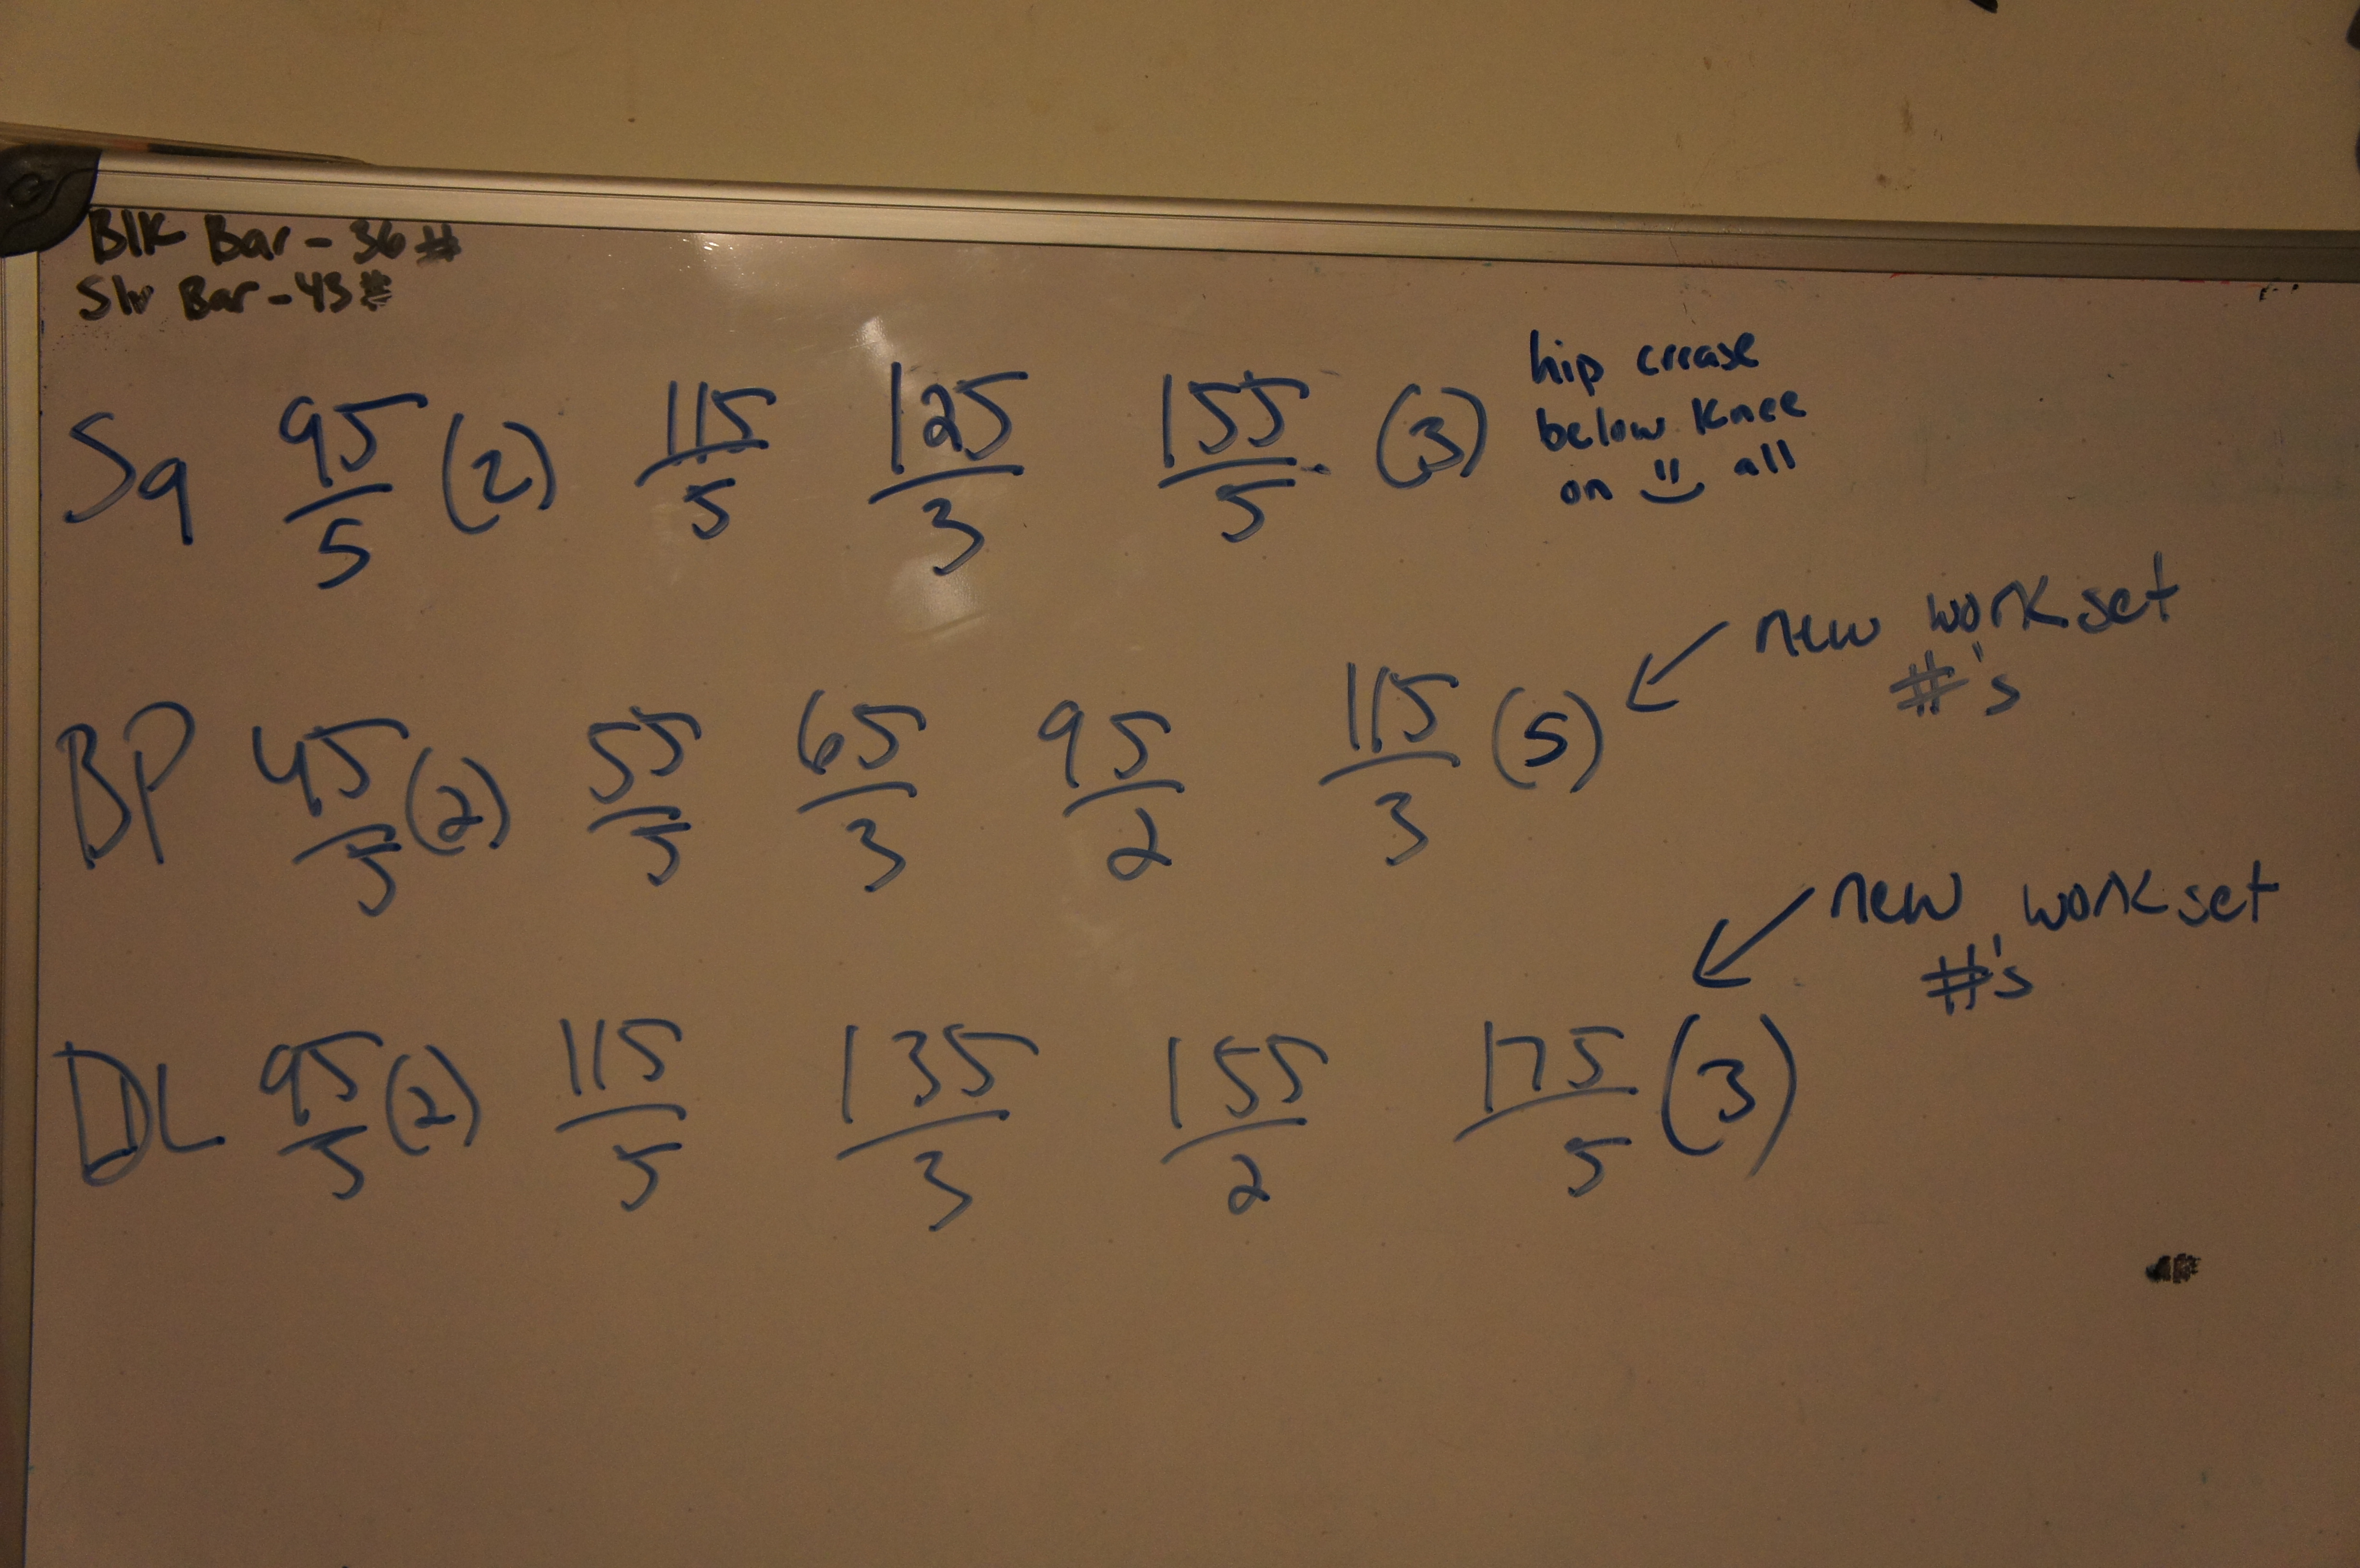 Blk Bar - 36#
Slv Bar - 43#
Sq 95/5 (2) 115/5 125/3 155/5 (3)
hip crease
below knee
on all
new work set
#'s
BP 45/5 (2) 55/5 65/3 95/2 115/3 (5)
new work set
#'s
DL 95/5 (2) 115/5 135/3 155/2 175/5 (3)